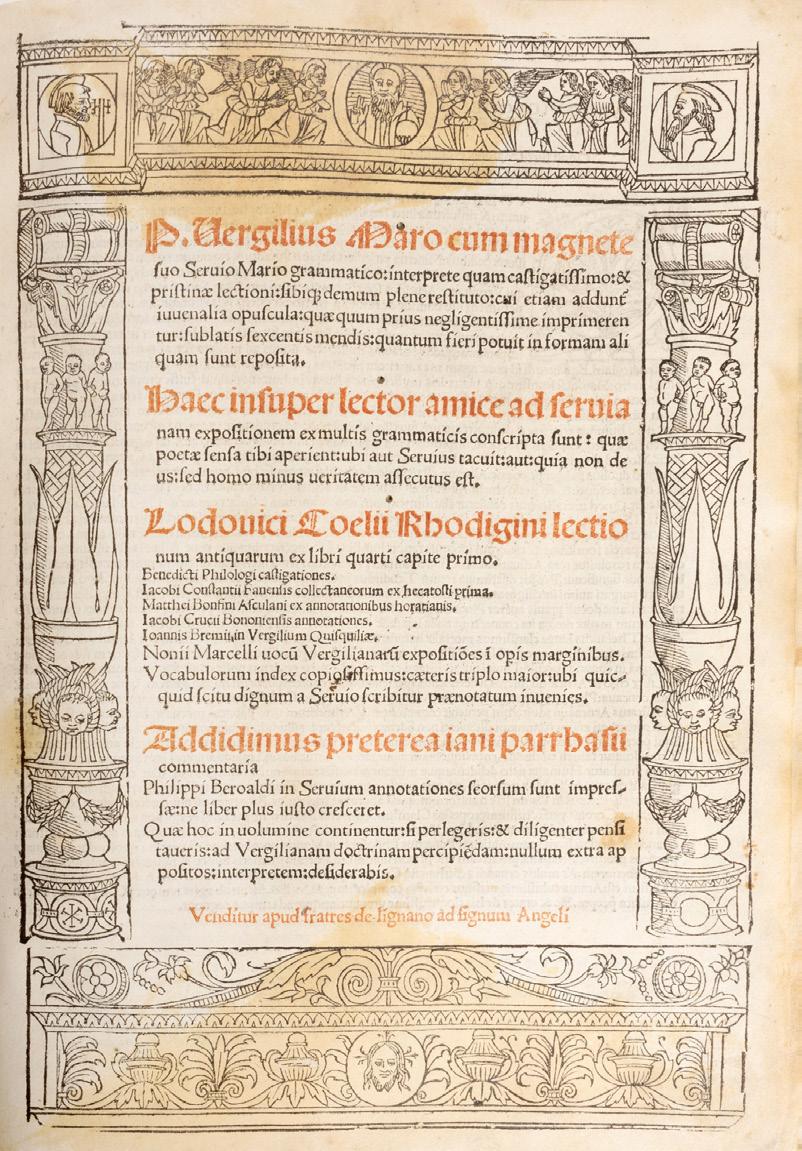 P. Uergilius Maro cum magnete
suo Seruio Mario grammatico:interprete quam castigatissimo:&
pristinæ lectioni:sibiq; demum plene restituto:cui etiam addunt̃
iuuenalia opuscula:quæ quum prius negligentissime imprimeren
tur:sublatis sexcentis mendis:quantum fieri potuit in formam ali
quam sunt reposita.
Haec insuper lector amice ad seruia
nam expositionem ex multis grammaticis conscripta sunt: quæ
poetæ sensa tibi aperient:ubi aut Seruius tacuit:aut:quia non de
us:sed homo minus ueritatem assecutus est.
Lodouici Coelii Rhodigini lectio
num antiquarum ex libri quarti capite primo.
Benedicti Philologi castigationes.
Iacobi Constantii Fanensis collectaneorum ex hecatosti prima.
Matthei Bonfini Asculani ex annotationibus horatianis.
Iacobi Crucii Bononiensis annotationes.
Ioannis Bremii,in Vergilium Quisquiliæ.
Nonii Marcelli uocũ Vergilianarũ expositiões ĩ opis marginibus.
Vocabulorum index copiosissimus:cæteris triplo maior:ubi quic-
quid scitu dignum a Seruio scribitur prænotatum inuenies.
Addidimus preterea iani parrhasii
commentaria
Philippi Beroaldi in Seruium annotationes seorsum sunt impres-
sæ:ne liber plus iusto cresceret.
Quæ hoc in uolumine continentur:si perlegeris:& diligenter pensi
taueris:ad Vergilianam doctrinam percipiẽdam:nullum extra ap
positos:interpretem:desiderabis.
Venditur apud fratres de lignano ad signum Angeli